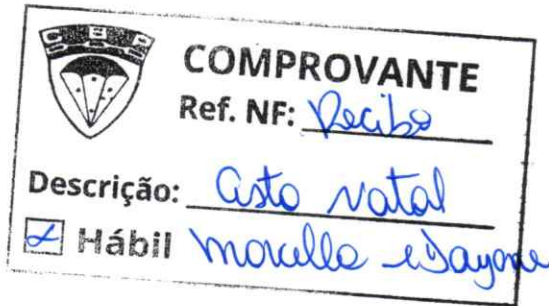 COMPROVANTE
Ref. NF: Recibo
Descrição: Cesta Natal
Hábil Morcello e Dayane